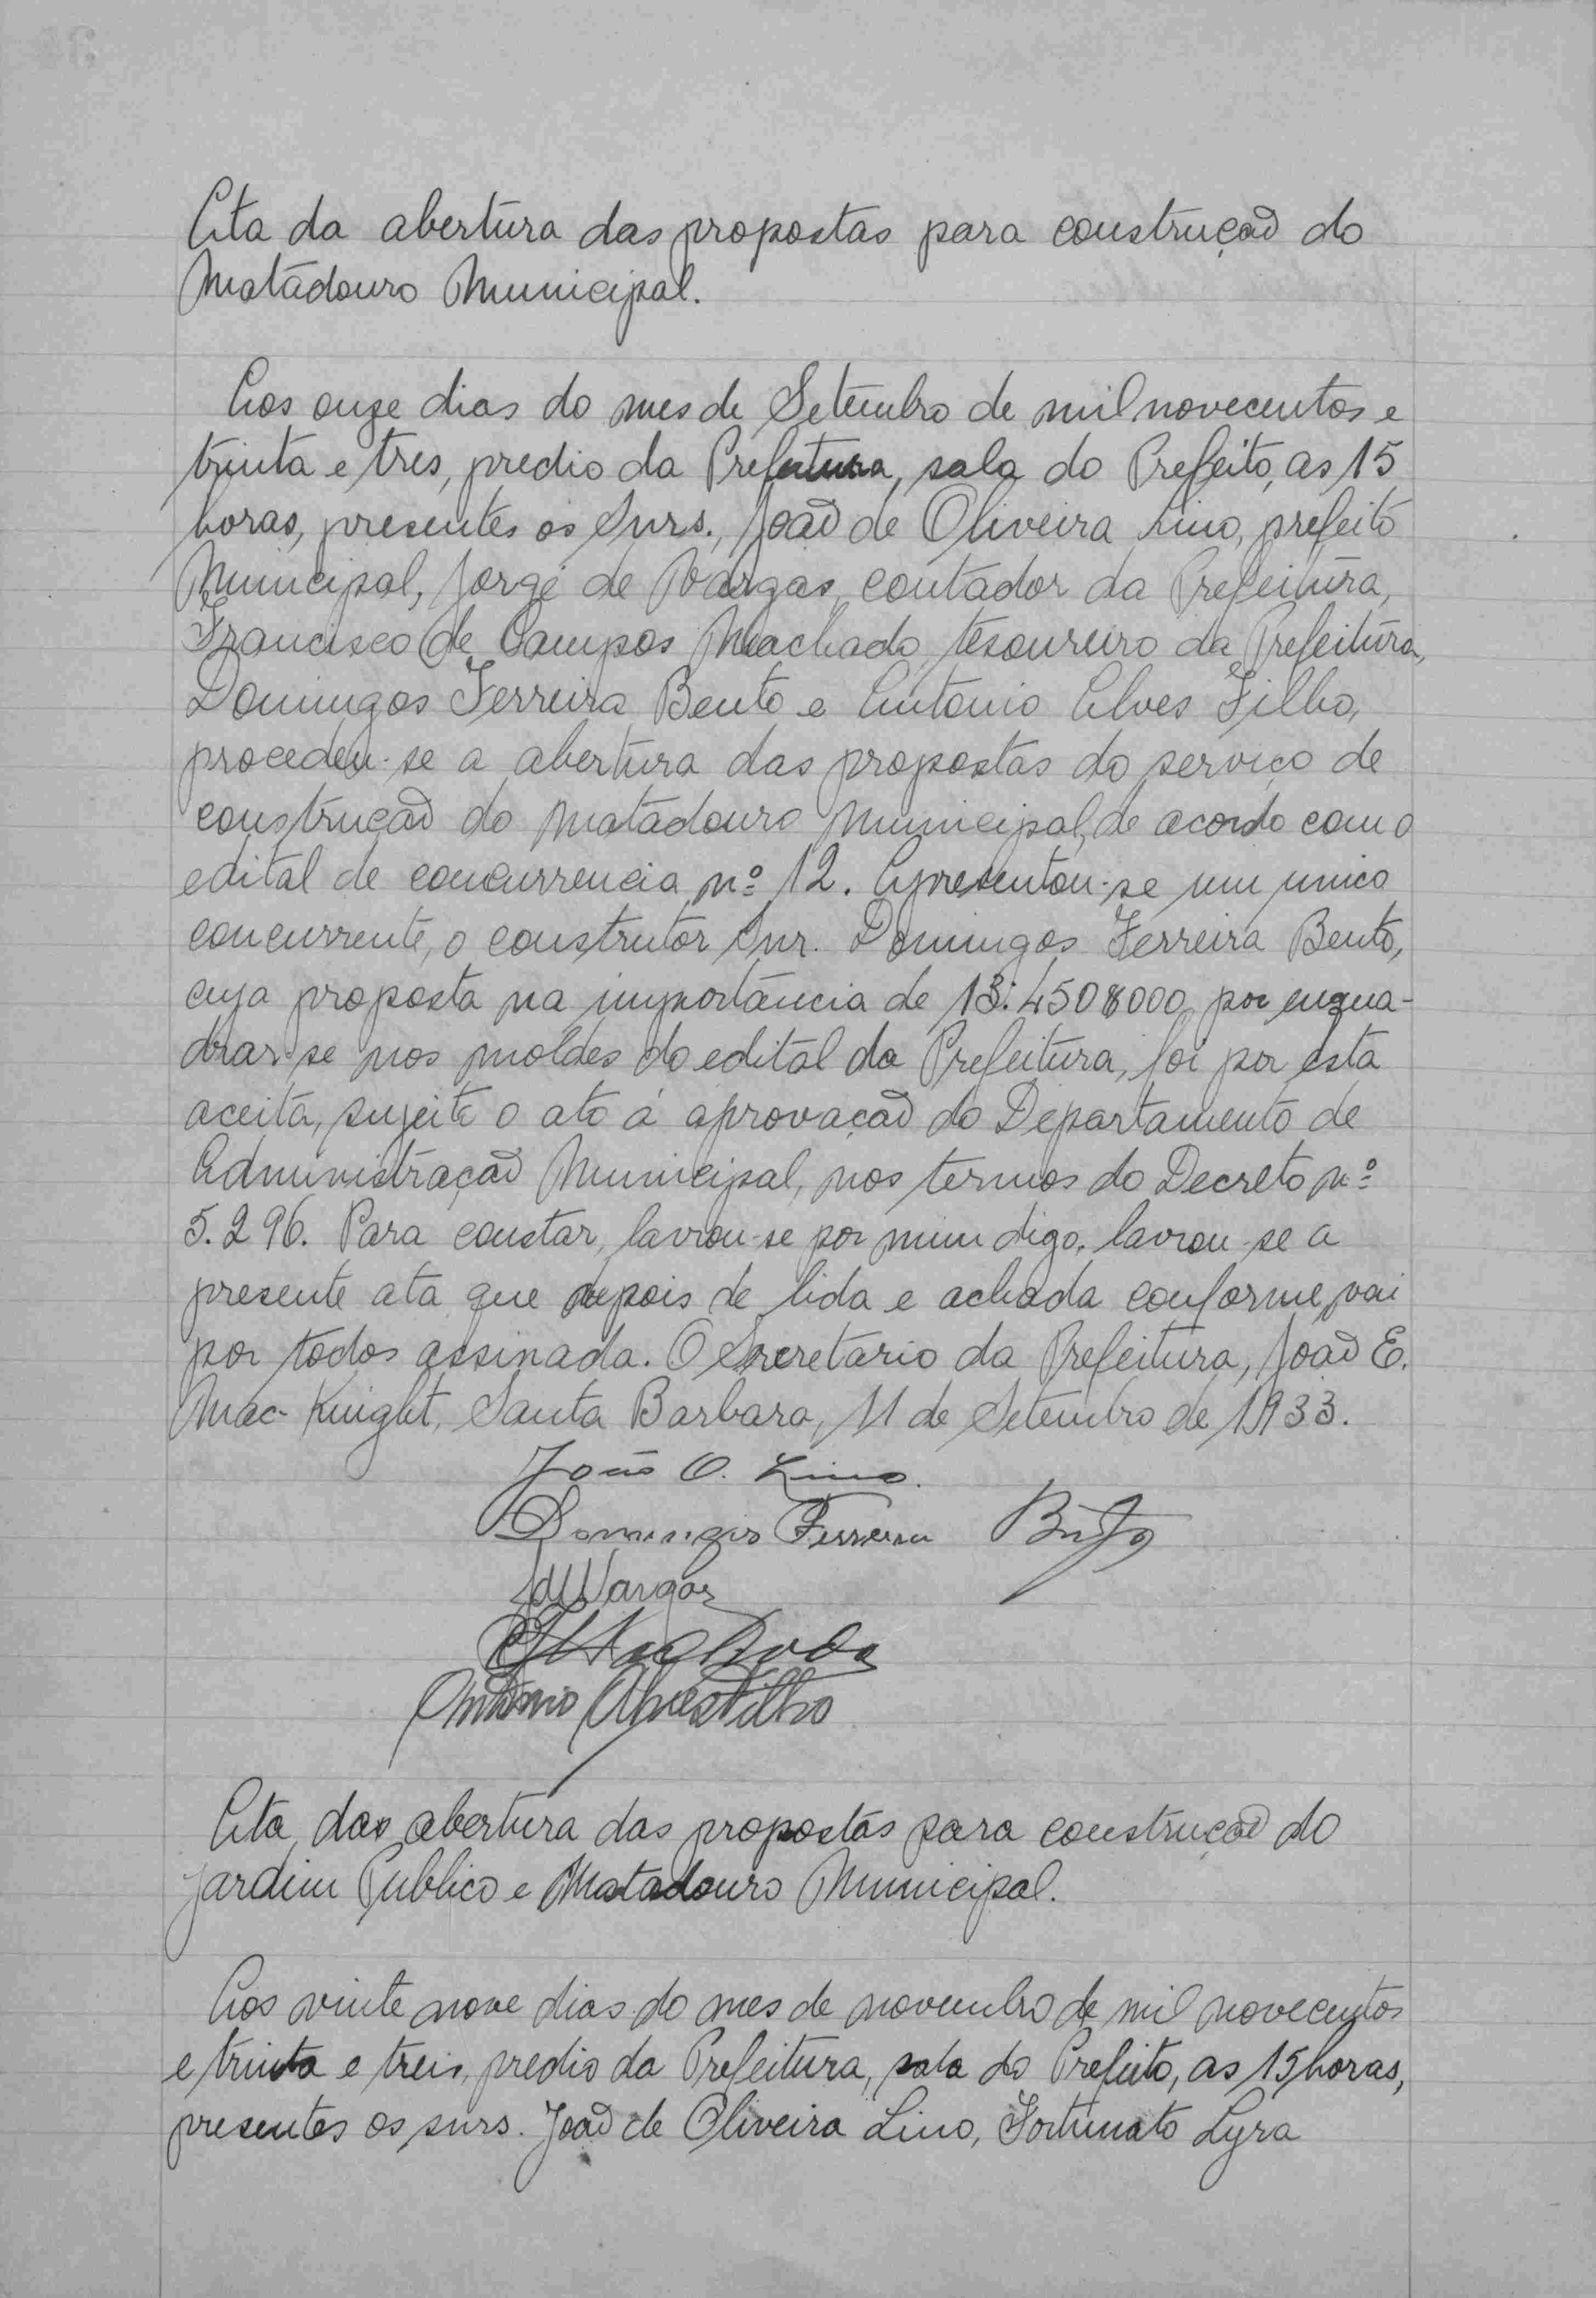 Ata da abertura das propostas para construção do
Matadouro Municipal.
Aos onze dias do mes de Setembro de mil novecentos e
trinta e tres, predio da Prefeitura, sala do Prefeito, as 15
horas, presentes os Snrs., João de Oliveira Lino, prefeito
Municipal, Jorge de Vargas, contador da Prefeitura,
Francisco de Campos Machado, tesoureiro da Prefeitura,
Domingos Ferreira Bento e Antonio Alves Filho,
procedeu-se a abertura das propostas do serviço de
construção do Matadouro Municipal, de acordo com o
edital de concurrencia nº 12. Apresentou-se um unico
concurrente, o construtor Snr. Domingos Ferreira Bento,
cuja proposta na importância de 13:450$000, por enqua-
drar-se nos moldes do edital da Prefeitura, foi por esta
aceita, sujeito o ato á aprovação do Departamento de
Administração Municipal, nos termos do Decreto nº
5.296. Para constar, lavrou-se por mim digo, lavrou-se a
presente ata que depois de lida e achada conforme, vai
por todos assinada. O Secretario da Prefeitura, João E.
Mac-Knight, Santa Barbara, 11 de Setembro de 1933.
João O. Lino.
Domingos Ferreira Bento
JdVargas
Machado
Antonio Alves Filho
Ata das abertura das propostas para construção do
jardim Publico e Matadouro Municipal.
Aos vinte nove dias do mes de novembro de mil novecentos
e trinta e treis, predio da Prefeitura, sala do Prefeito, as 15 horas,
presentes os snrs. João de Oliveira Lino, Fortunato Lyra